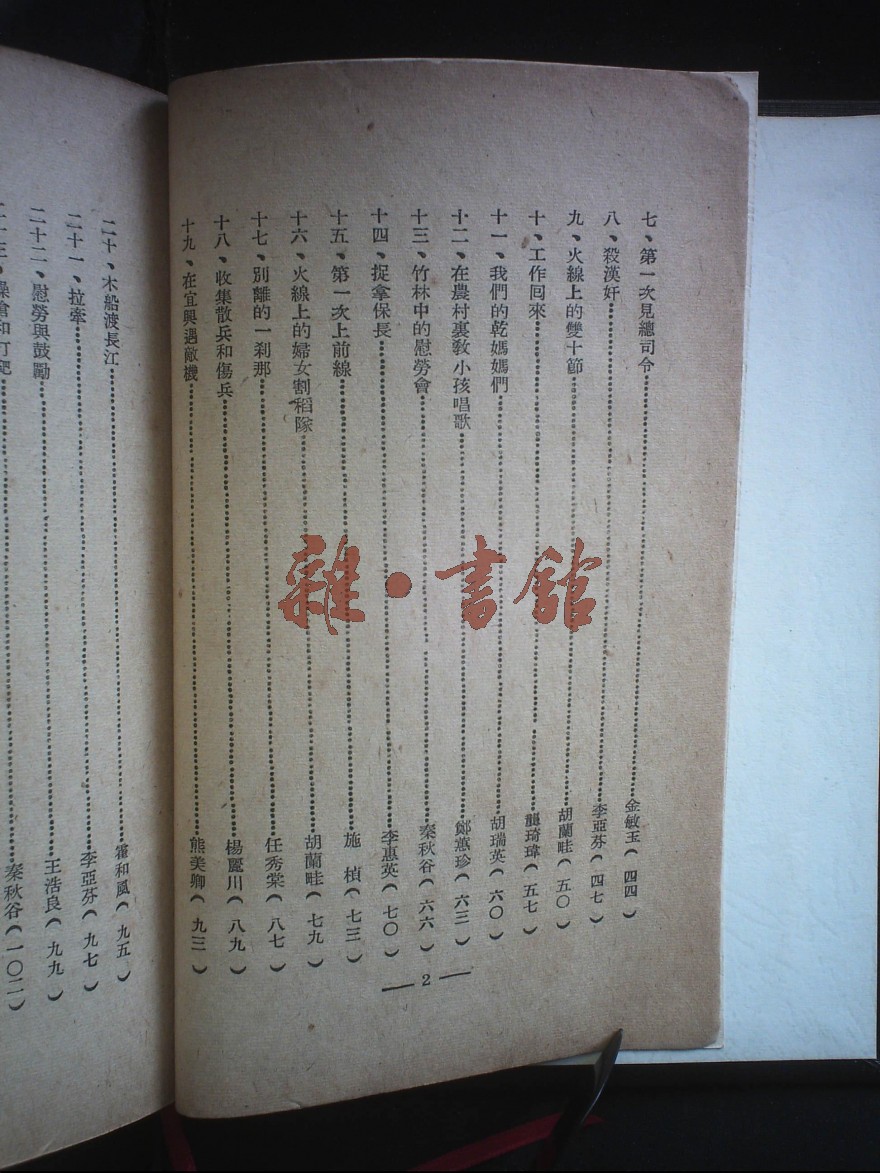 七、第一次見總司令……金敏玉（四四）
八、殺漢奸……李亞芬（四七）
九、火線上的雙十節……胡蘭畦（五〇）
十、工作囘來……龔琦瑋（五七）
十一、我們的乾媽媽們……胡瑞英（六〇）
十二、在農村裏敎小孩唱歌……鄭蕙珍（六三）
十三、竹林中的慰勞會……秦秋谷（六六）
十四、捉拿保長……李惠英（七〇）
十五、第一次上前線……施　楨（七三）
十六、火線上的婦女割稻隊……胡蘭畦（七九）
十七、別離的一刹那……任秀棠（八七）
十八、收集散兵和傷兵……楊麗川（八九）
十九、在宜興遇敵機……熊美卿（九三）
— 2 —
二十、木船渡長江……霍和風（九五）
二十一、拉牽……李亞芬（九七）
二十二、慰勞與鼓勵……王浩良（九九）
二十三、操槍和打靶……秦秋谷（一〇二）
雜·書館